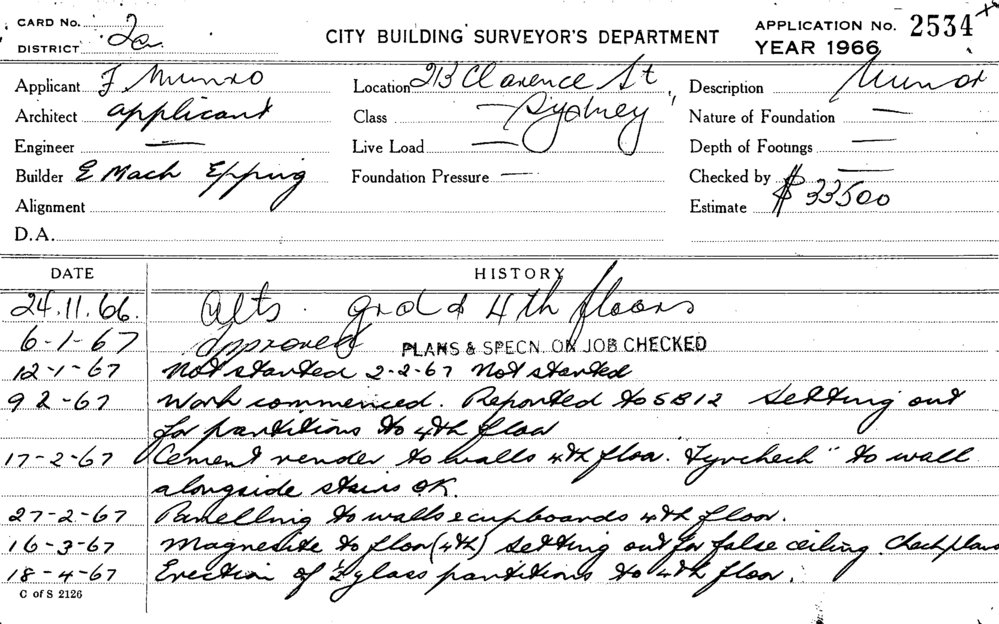 CARD No. 2a
DISTRICT
CITY BUILDING SURVEYOR'S DEPARTMENT
APPLICATION No. 2534
YEAR 1966
Applicant F Munro
Location 213 Clarence St, Sydney
Description Minor
Architect applicant
Class
Nature of Foundation —
Engineer —
Live Load —
Depth of Footings —
Builder E Mach Epping
Foundation Pressure —
Checked by —
Alignment
Estimate $33500
D.A.
DATE HISTORY
24.11.66. Alts. grd & 4th floors
6-1-67 Approved PLANS & SPECN. ON JOB CHECKED
12-1-67 Not started 2-2-67 Not started
9 2-67 Work commenced. Reported to SB12 Setting out
for partitions to 4th floor
17-2-67 Cement render to walls 4th floor. "Fyrchech" to wall
alongside stairs OK.
27-2-67 Panelling to walls & cupboards 4th floor.
16-3-67 Magnesite to floor (4th) setting out for false ceiling. Check plans
18-4-67 Erection of glass partitions to 4th floor.
C of S 2126